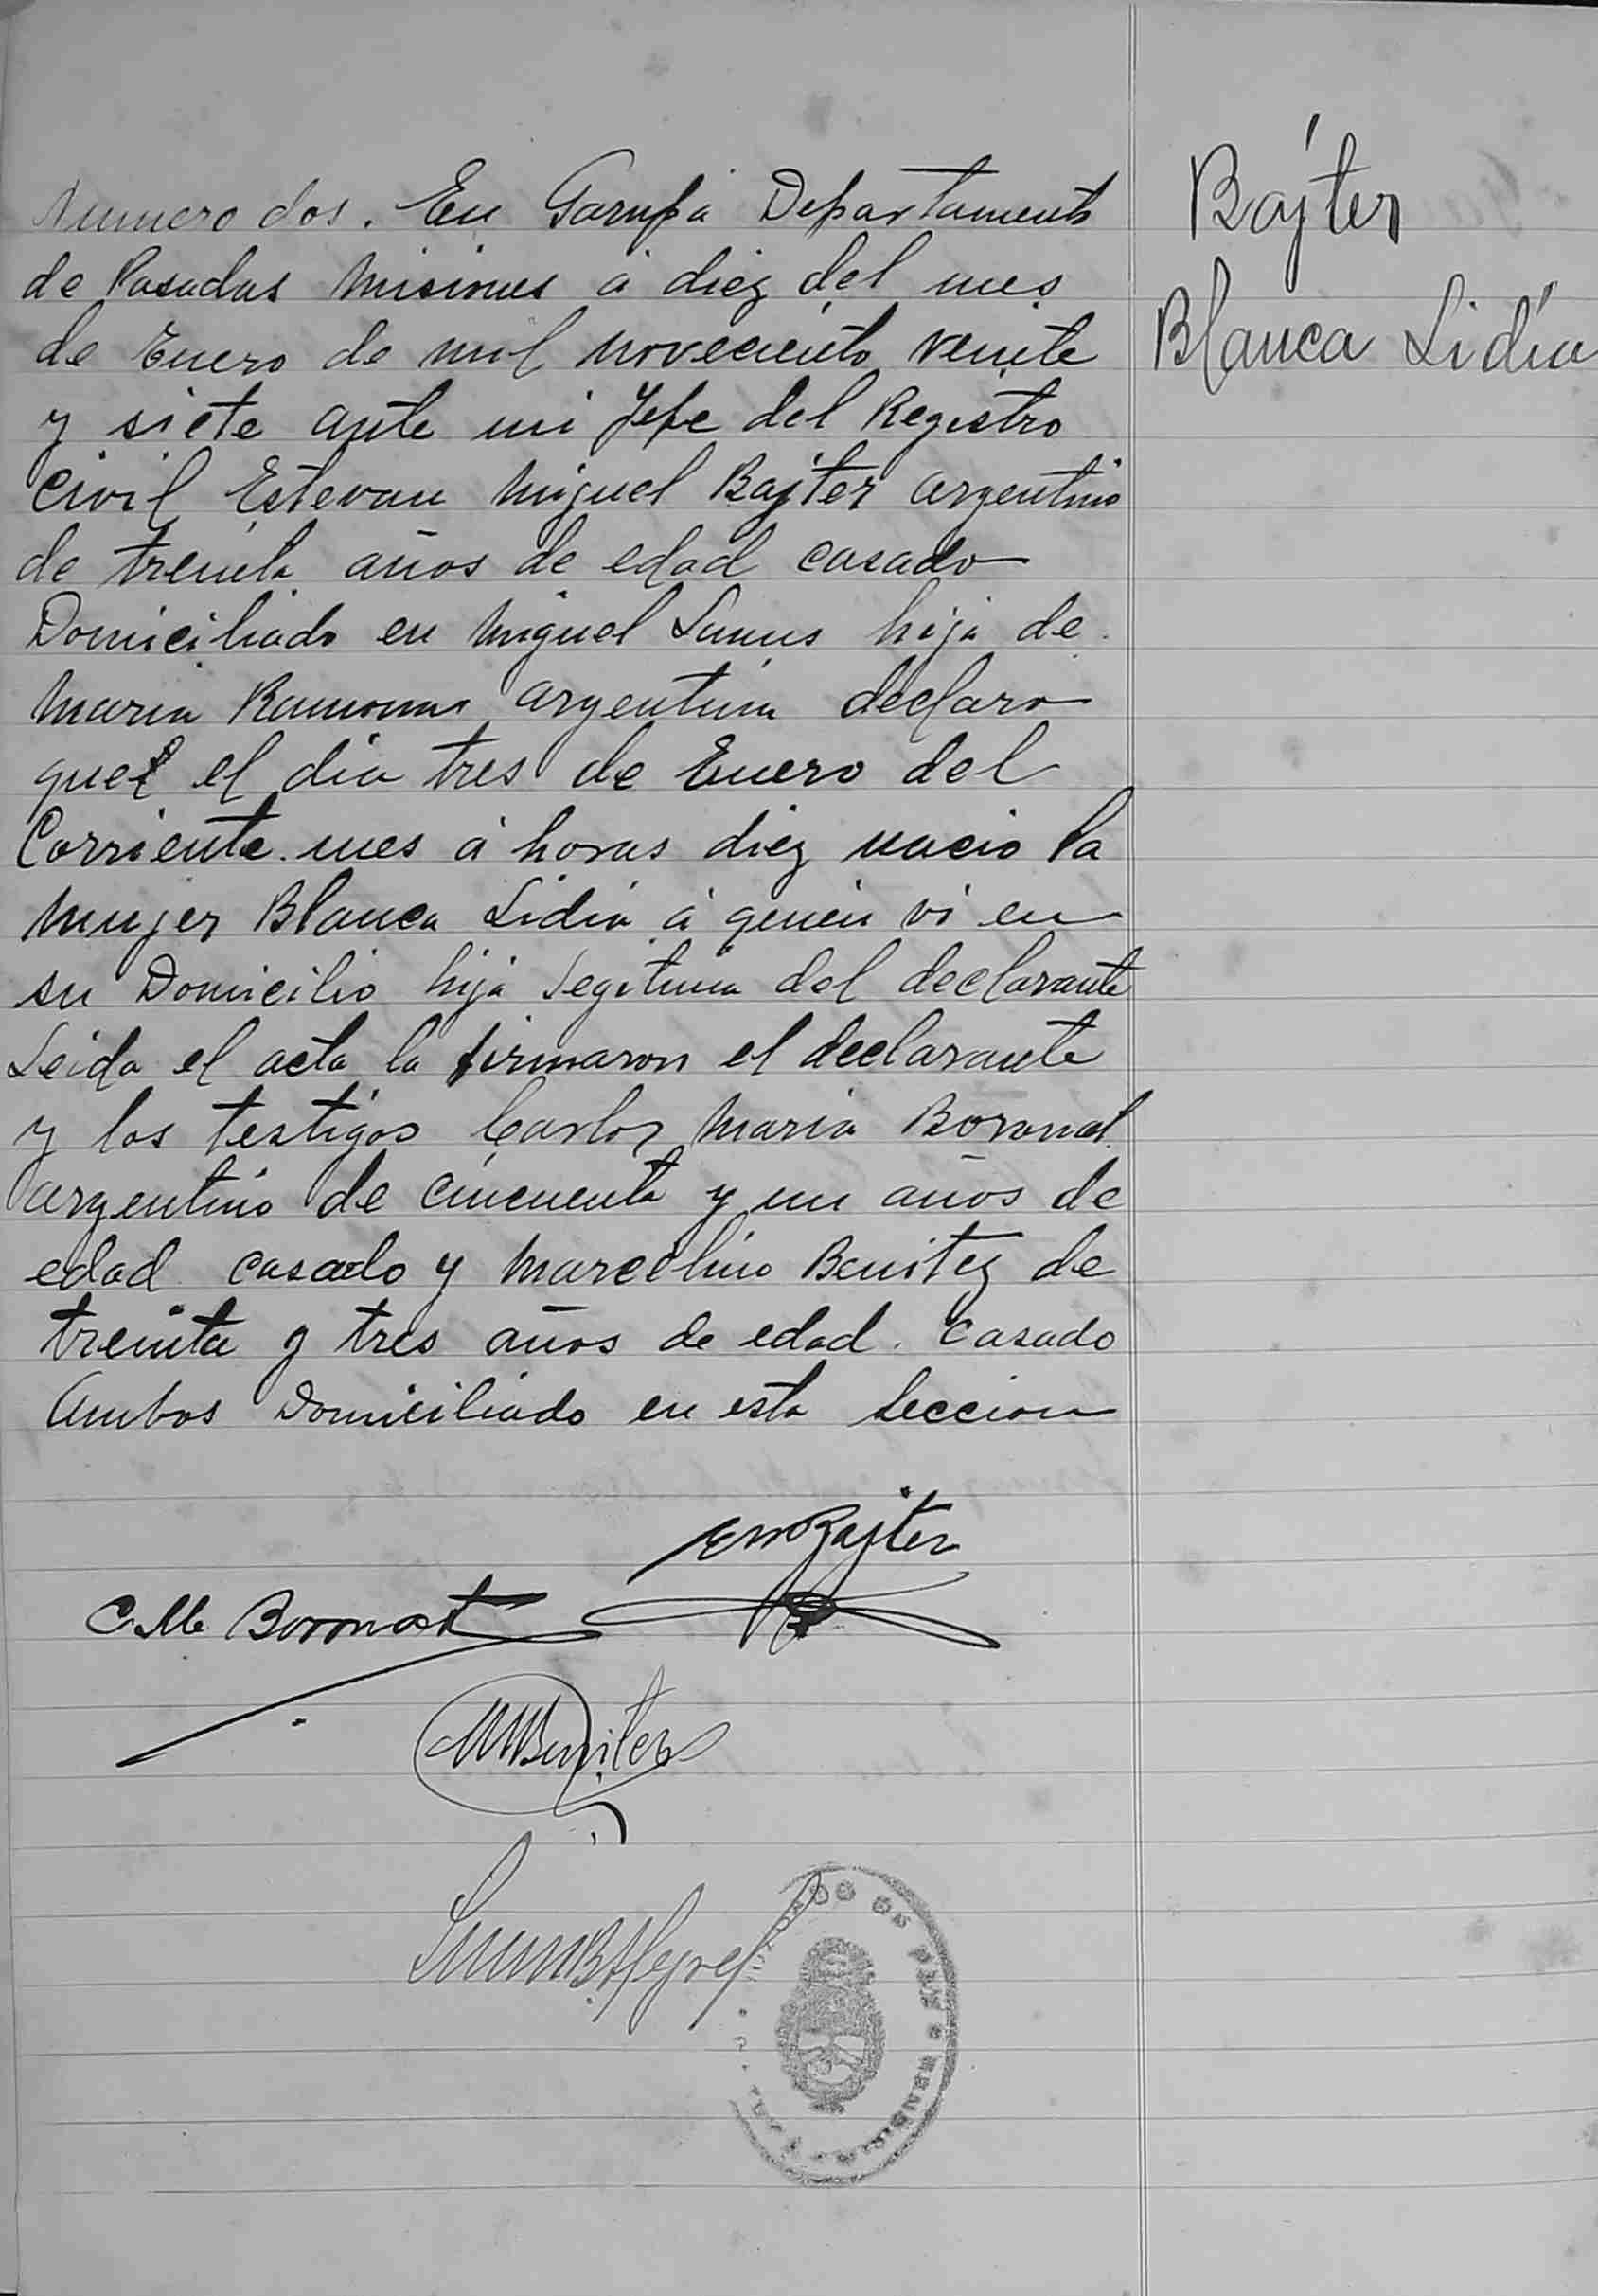 Bajter
Blanca Lidia
Numero dos. En Garupá Departamento
de Posadas Misiones á diez del mes
de Enero de mil novecientos veinte
y siete ante mi Jefe del Registro
Civil Estevan Miguel Bajter argentino
de treinta años de edad casado
Domiciliado en Miguel Lanus hija de
Maria argentina declaro
que el dia tres de Enero del
Corriente mes á horas diez nacio la
mujer Blanca Lidia á quien vi en
su Domicilio hija legitima del declarante
Leida el acta la firmaron el declarante
y los testigos Carlos Maria Boronat
argentino de cincuenta y un años de
edad casado y Marcelino Benitez de
treinta y tres años de edad. Casado
Ambos Domiciliado en esta Seccion
EMBajter
C. M. Boronat
MBenitez